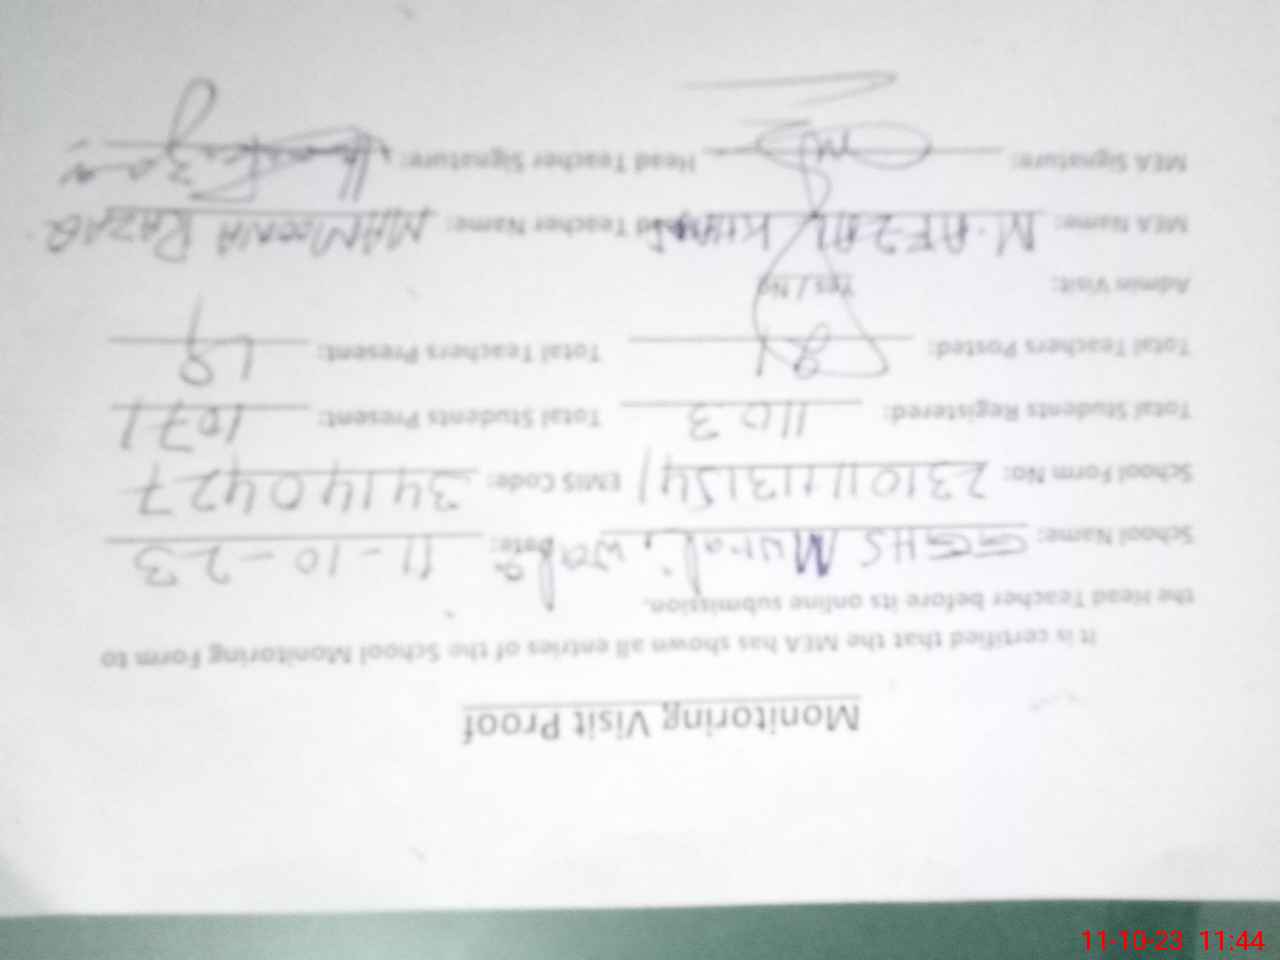 Monitoring Visit Proof
It is certified that the MEA has shown all entries of the School Monitoring Form to
the Head Teacher before its online submission.
School Name: GGHS Murali wala Date: 11-10-23
School Form No: EMIS Code: 34140427
Total Students Registered: 1103 Total Students Present: 1071
Total Teachers Posted: 21 Total Teachers Present: 19
Admin Visit: Yes / No
MEA Name: M. AFZAL KHAN Head Teacher Name: MAMOONA RAZZAQ
MEA Signature: Head Teacher Signature:
11-10-23 11:44